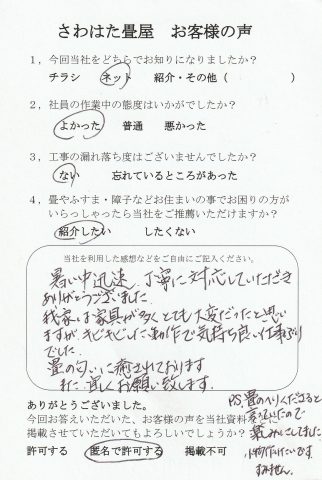 さわはた畳屋　お客様の声
1，今回当社をどちらでお知りになりましたか？
チラシ　ネット　紹介・その他（　　　　）
2，社員の作業中の態度はいかがでしたか？
よかった　普通　悪かった
3，工事の漏れ落ち度はございませんでしたか？
ない　忘れているところがあった
4，畳やふすま・障子などお住まいの事でお困りの方が
いらっしゃったら当社をご推薦いただけますか？
紹介したい　したくない
当社を利用した感想などをご自由にご記入ください。
暑い中迅速、丁寧に対応していただき
ありがとうございました
我家は家具が多くとても大変だったと思い
ますが、キビキビした動作で気持ち良い仕事ぶり
でした
畳の匂いに癒されております
また、宜しくお願い致します。
ありがとうございました。
今回お答えいただいた、お客様の声を当社資料などに
掲載させていただいてもよろしいでしょうか？
許可する　匿名で許可する　掲載不可
PS 畳のへりくださると
言っていたので
楽しみにしてました
小物作りたいです。
すみません。